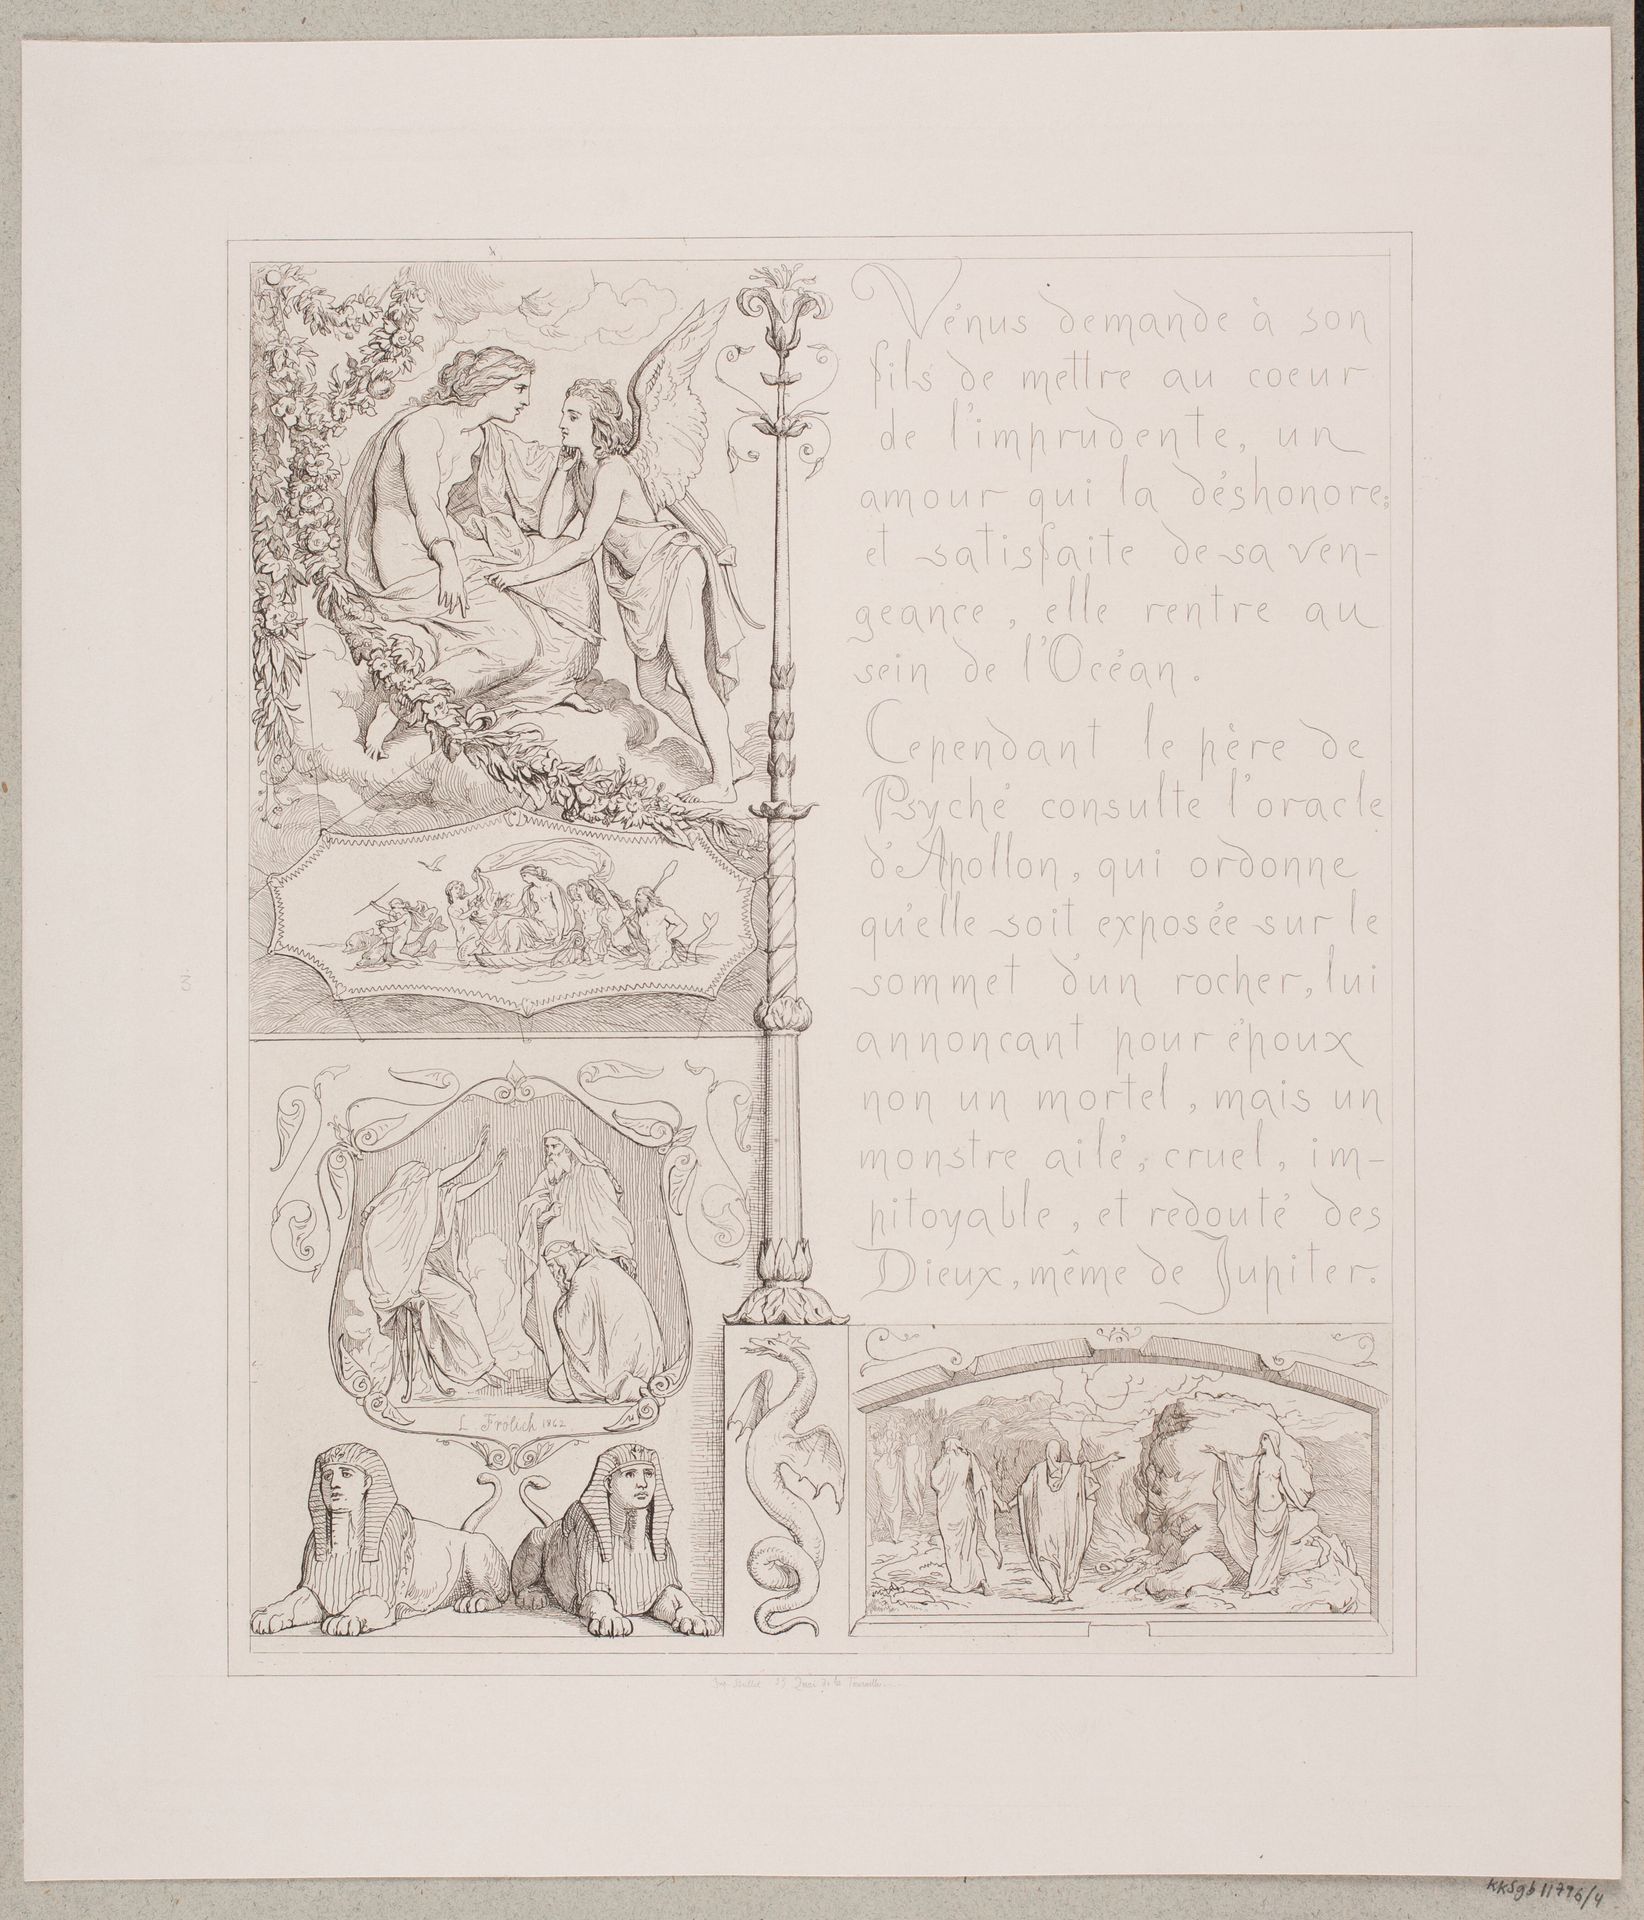 Vénus demande à son
fils de mettre au coeur
de l'imprudente, un
amour qui la déshonore;
et satisfaite de sa ven-
geance, elle rentre au
sein de l'Océan.
Cependant le père de
Psyché consulte l'oracle
d'Apollon, qui ordonne
qu'elle soit exposée sur le
sommet d'un rocher, lui
annoncant pour époux
non un mortel, mais un
monstre ailé, cruel, im-
pitoyable, et redouté des
Dieux, même de Jupiter.
L. Frölich 1862
3
Quai de la
KKSgb11796/4